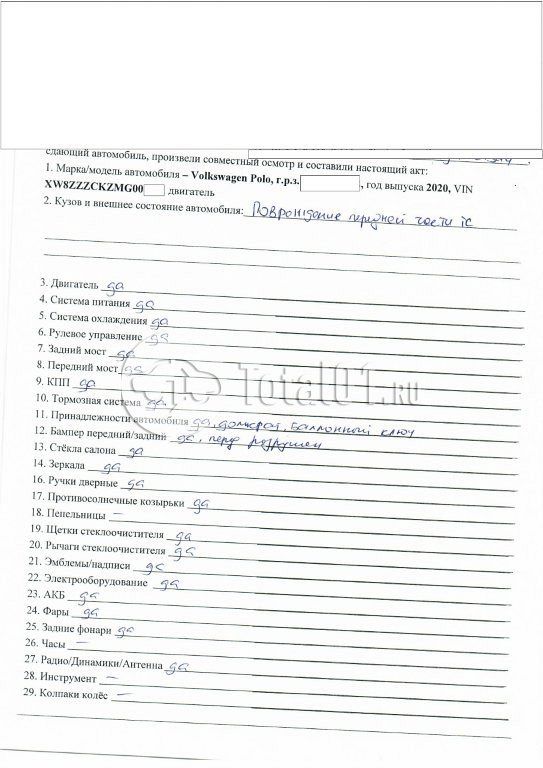 сдающий автомобиль, произвели совместный осмотр и составили настоящий акт:
1. Марка/модель автомобиля – Volkswagen Polo, г.р.з. , год выпуска 2020, VIN
XW8ZZZCKZMG00 двигатель
2. Кузов и внешнее состояние автомобиля: Поврождение передней части тс
3. Двигатель да
4. Система питания да
5. Система охлаждения да
6. Рулевое управление да
7. Задний мост да
8. Передний мост да
9. КПП да
10. Тормозная система да
11. Принадлежности автомобиля да, домкрат, баллонный ключ
12. Бампер передний/задний да, перед разрушен
13. Стёкла салона да
14. Зеркала да
16. Ручки дверные да
17. Противосолнечные козырьки да
18. Пепельницы –
19. Щетки стеклоочистителя да
20. Рычаги стеклоочистителя да
21. Эмблемы/надписи да
22. Электрооборудование да
23. АКБ да
24. Фары да
25. Задние фонари да
26. Часы –
27. Радио/Динамики/Антенна да
28. Инструмент –
29. Колпаки колёс –
Total01.RU